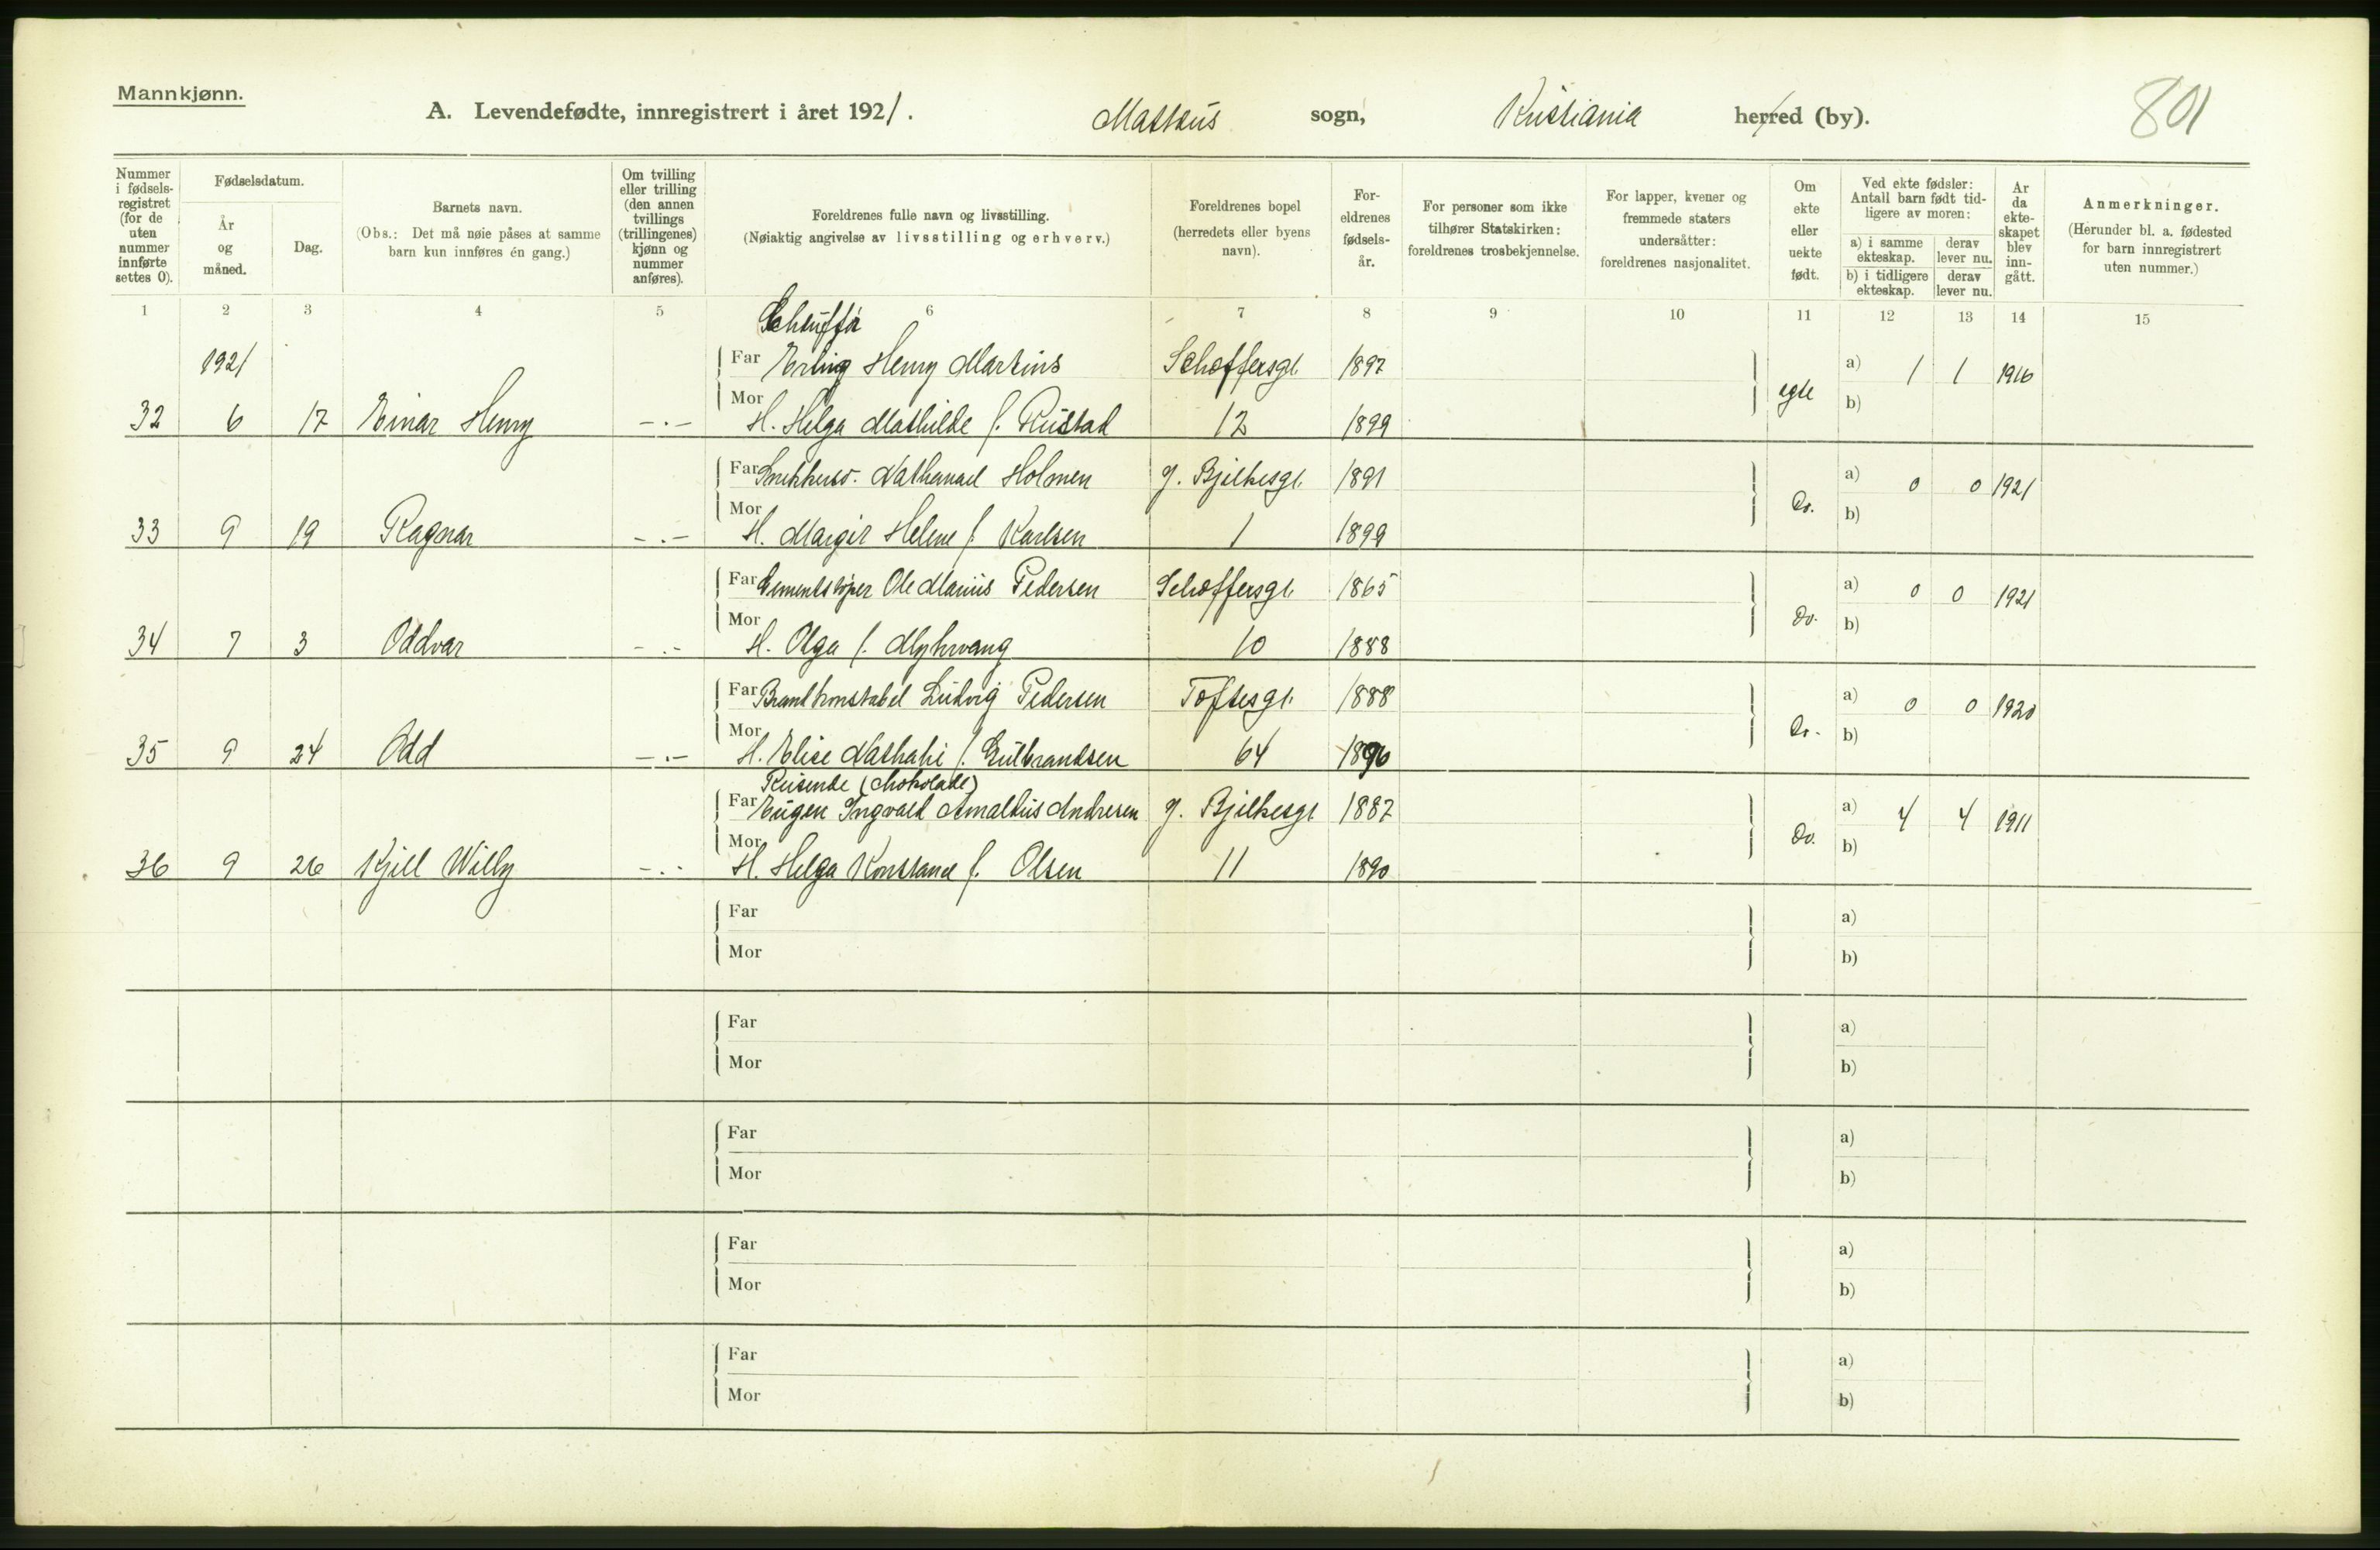 Mannkjønn.
A. Levendefødte, innregistrert i året 1921. Matteus sogn, Kristiania herred (by). 801
Nummer i fødsels-registret (for de uten nummer innførte settes 0).
Fødselsdatum.
År og måned.
Dag.
Barnets navn.
(Obs.: Det må nøie påses at samme barn kun innføres én gang.)
Om tvilling eller trilling (den annen tvillings (trillingenes) kjønn og nummer anføres).
Foreldrenes fulle navn og livsstilling.
(Nøiaktig angivelse av livsstilling og erhverv.)
Foreldrenes bopel (herredets eller byens navn).
For-eldrenes fødsels-år.
For personer som ikke tilhører Statskirken: foreldrenes trosbekjennelse.
For lapper, kvener og fremmede staters undersåtter: foreldrenes nasjonalitet.
Om ekte eller uekte født.
Ved ekte fødsler: Antall barn født tid-ligere av moren:
a) i samme ekteskap.
derav lever nu.
b) i tidligere ekteskap.
derav lever nu.
År da ekte-skapet blev inn-gått.
Anmerkninger.
(Herunder bl. a. fødested for barn innregistrert uten nummer.)
1 2 3 4 5 6 7 8 9 10 11 12 13 14 15
1921 Far Erling Henry Martins Schoffersgt. 1897 egte a) 1 1 1916
32 6 17 Einar Henry -.- Mor H. Helga Mathilde f. Rustad 12 1899 b)
Far Nathanael Holmen g. Bjelkesgt. 1891 Do. a) 0 0 1921
33 9 19 Ragnar -.- Mor H. Margit Helene f. Karlsen 1 1899 b)
Far Cementstøper Ole Marius Pedersen Schoffersgt. 1865 Do. a) 0 0 1921
34 7 3 Oddvar -.- Mor H. Olga f. Myhrvang 10 1888 b)
Far Brandkonstabel Ludvig Pedersen Toftesgt. 1888 Do. a) 0 0 1920
35 9 24 Odd -.- Mor H. Elise Nathalie f. Gulbrandsen 64 1896 b)
Reisende (Chokolade)
Far Eugen Ingvald Amaldus Andresen g. Bjelkesgt 1887 Do. a) 4 4 1911
36 9 26 Kjell Willy -.- Mor H. Helga Konstance f. Olsen 11 1890 b)
Far a)
Mor b)
Far a)
Mor b)
Far a)
Mor b)
Far a)
Mor b)
Far a)
Mor b)